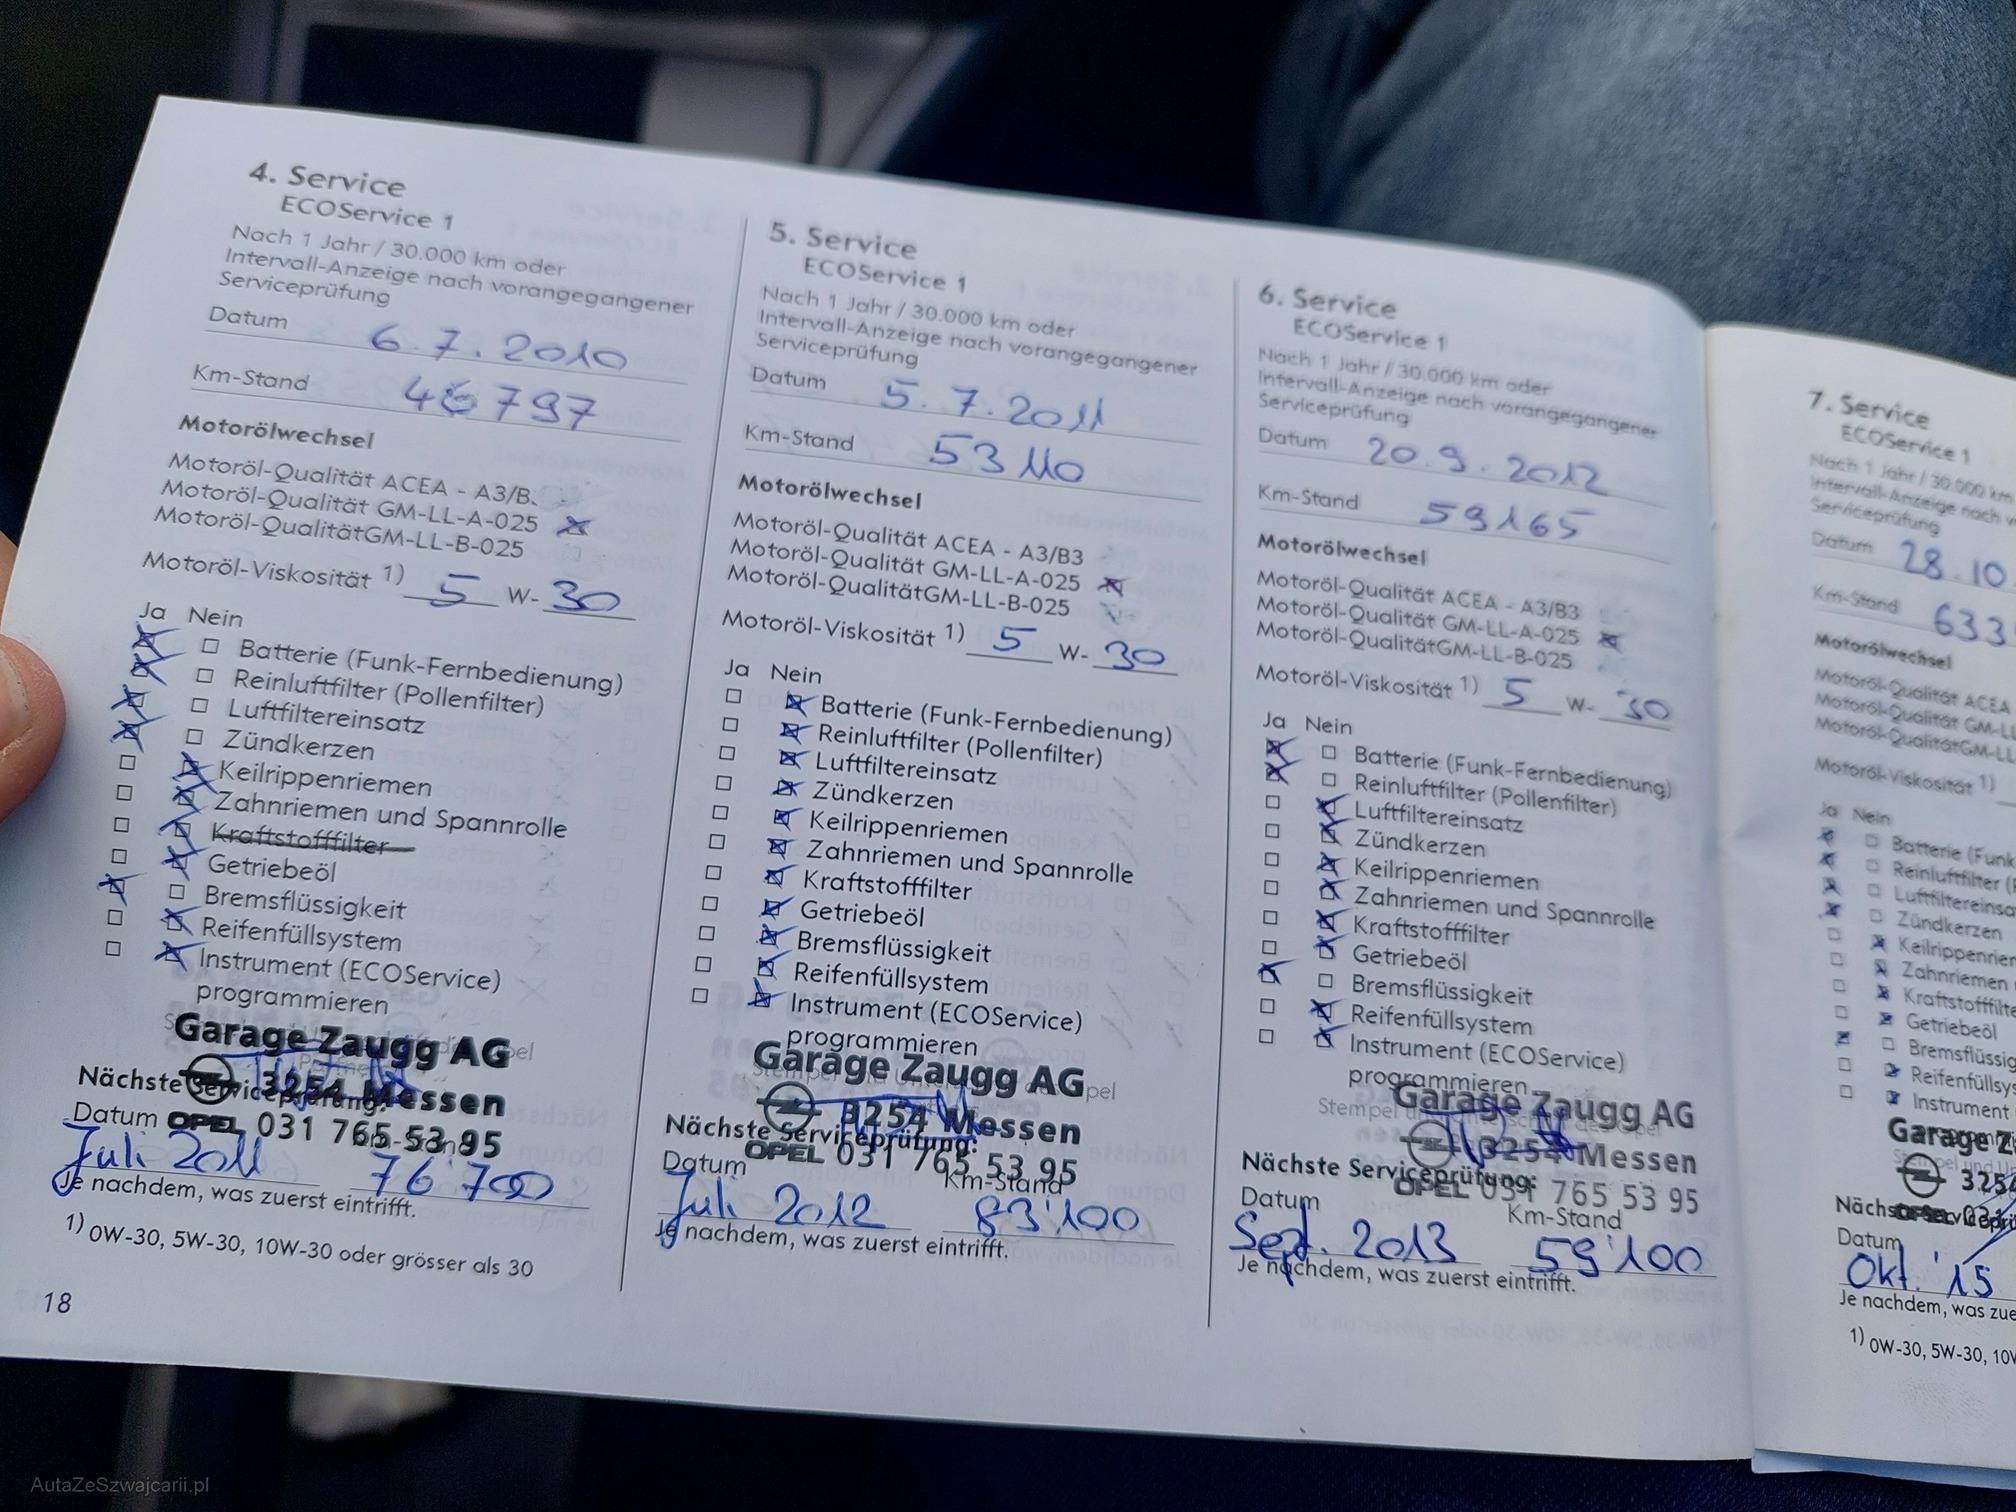 4. Service
ECOService 1
Nach 1 Jahr / 30.000 km oder
Intervall-Anzeige nach vorangegangener
Serviceprüfung
Datum 6.7.2010
Km-Stand 46797
Motorölwechsel
Motoröl-Qualität ACEA - A3/B
Motoröl-Qualität GM-LL-A-025 x
Motoröl-QualitätGM-LL-B-025
Motoröl-Viskosität 1) 5 W- 30
Ja Nein
x □ Batterie (Funk-Fernbedienung)
x □ Reinluftfilter (Pollenfilter)
x □ Luftfiltereinsatz
x □ Zündkerzen
□ x Keilrippenriemen
□ x Zahnriemen und Spannrolle
□ x Kraftstofffilter
□ x Getriebeöl
x □ Bremsflüssigkeit
□ x Reifenfüllsystem
□ x Instrument (ECOService)
programmieren
Garage Zaugg AG
3254 Messen
OPEL 031 765 53 95
Nächste Serviceprüfung:
Datum
Juli 2011 76'700
Je nachdem, was zuerst eintrifft.
1) 0W-30, 5W-30, 10W-30 oder grösser als 30
18
5. Service
ECOService 1
Nach 1 Jahr / 30.000 km oder
Intervall-Anzeige nach vorangegangener
Serviceprüfung
Datum 5.7.2011
Km-Stand 53110
Motorölwechsel
Motoröl-Qualität ACEA - A3/B3
Motoröl-Qualität GM-LL-A-025 x
Motoröl-QualitätGM-LL-B-025
Motoröl-Viskosität 1) 5 W- 30
Ja Nein
□ x Batterie (Funk-Fernbedienung)
□ x Reinluftfilter (Pollenfilter)
□ x Luftfiltereinsatz
□ x Zündkerzen
□ x Keilrippenriemen
□ x Zahnriemen und Spannrolle
□ x Kraftstofffilter
□ x Getriebeöl
□ x Bremsflüssigkeit
□ x Reifenfüllsystem
□ x Instrument (ECOService)
programmieren
Garage Zaugg AG
3254 Messen
OPEL 031 765 53 95
Nächste Serviceprüfung:
Datum Km-Stand
Juli 2012 83'100
Je nachdem, was zuerst eintrifft.
6. Service
ECOService 1
Nach 1 Jahr / 30.000 km oder
Intervall-Anzeige nach vorangegangener
Serviceprüfung
Datum 20.9.2012
Km-Stand 59165
Motorölwechsel
Motoröl-Qualität ACEA - A3/B3
Motoröl-Qualität GM-LL-A-025 x
Motoröl-QualitätGM-LL-B-025
Motoröl-Viskosität 1) 5 W- 30
Ja Nein
x □ Batterie (Funk-Fernbedienung)
x □ Reinluftfilter (Pollenfilter)
□ x Luftfiltereinsatz
□ x Zündkerzen
□ x Keilrippenriemen
□ x Zahnriemen und Spannrolle
□ x Kraftstofffilter
□ x Getriebeöl
x □ Bremsflüssigkeit
□ x Reifenfüllsystem
□ x Instrument (ECOService)
programmieren
Garage Zaugg AG
3254 Messen
OPEL 031 765 53 95
Nächste Serviceprüfung:
Datum Km-Stand
Sept. 2013 59'100
Je nachdem, was zuerst eintrifft.
7. Service
ECOService 1
Nach 1 Jahr / 30.000 km
Intervall-Anzeige nach v
Serviceprüfung
Datum 28.10
Km-Stand 633
Motorölwechsel
Motoröl-Qualität ACEA
Motoröl-Qualität GM-L
Motoröl-QualitätGM-L
Motoröl-Viskosität 1)
Ja Nein
x □ Batterie (Funk
x □ Reinluftfilter (
x □ Luftfiltereinsa
x □ Zündkerzen
□ x Keilrippenrier
□ x Zahnriemen
□ x Kraftstofffilte
□ x Getriebeöl
x □ Bremsflüssig
□ x Reifenfüllsys
□ x Instrument
Garage Z
325
Datum
Okt. '15
Je nachdem, was zue
1) 0W-30, 5W-30, 10W
AutaZeSzwajcarii.pl